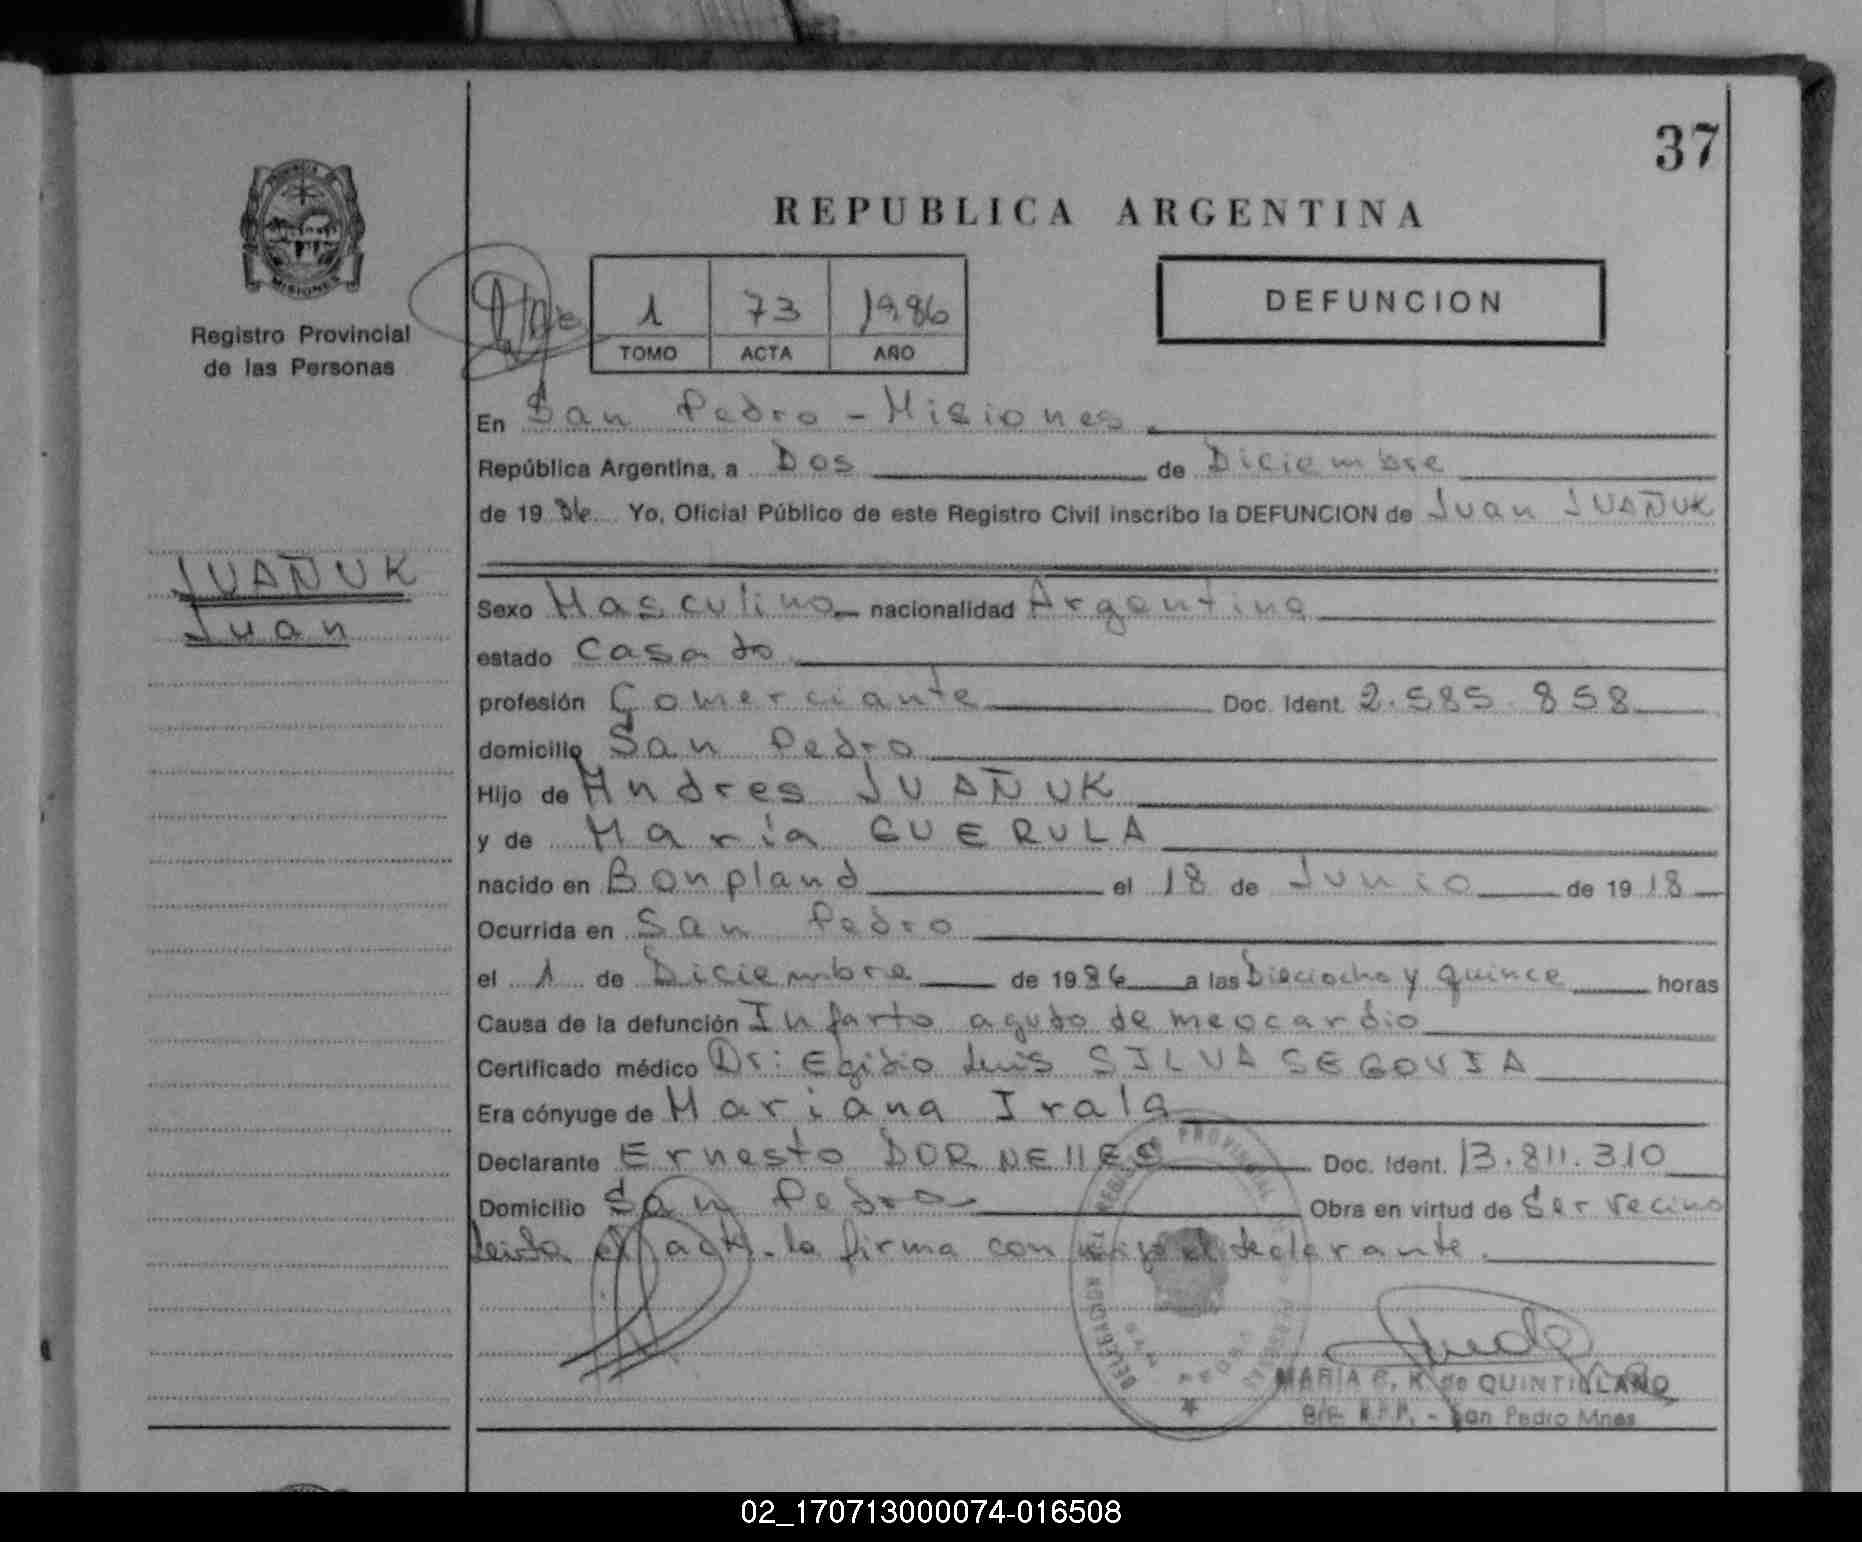 37
REPUBLICA ARGENTINA
PROVINCIA DE
MISIONES
Registro Provincial
de las Personas
1 73 1986
TOMO ACTA AÑO
DEFUNCION
En San Pedro - Misiones
República Argentina, a Dos de Diciembre
de 19 86 Yo, Oficial Público de este Registro Civil inscribo la DEFUNCION de Juan JUAÑUK
JUAÑUK
Juan
Sexo Masculino nacionalidad Argentina
estado Casado
profesión Comerciante Doc. Ident. 2.585.858
domicilio San Pedro
Hijo de Andres JUAÑUK
y de María GUERULA
nacido en Bonpland el 18 de Junio de 19 18
Ocurrida en San Pedro
el 1 de Diciembre de 1986 a las Dieciocho y quince horas
Causa de la defunción Infarto agudo de meocardio
Certificado médico Dr: Egidio Luis SILVA SEGOVIA
Era cónyuge de Mariana Irala
Declarante Ernesto DORNEllES Doc. Ident. 13.811.310
Domicilio San Pedro Obra en virtud de Ser vecino
leida el acta. la firma con migo el declarante.
REGISTRO PROVINCIAL DE LAS PERSONAS
DELEGACION
SAN PEDRO
MARIA R. K. de QUINTILLANO
R.P.P. - San Pedro Mnes.
02_170713000074-016508